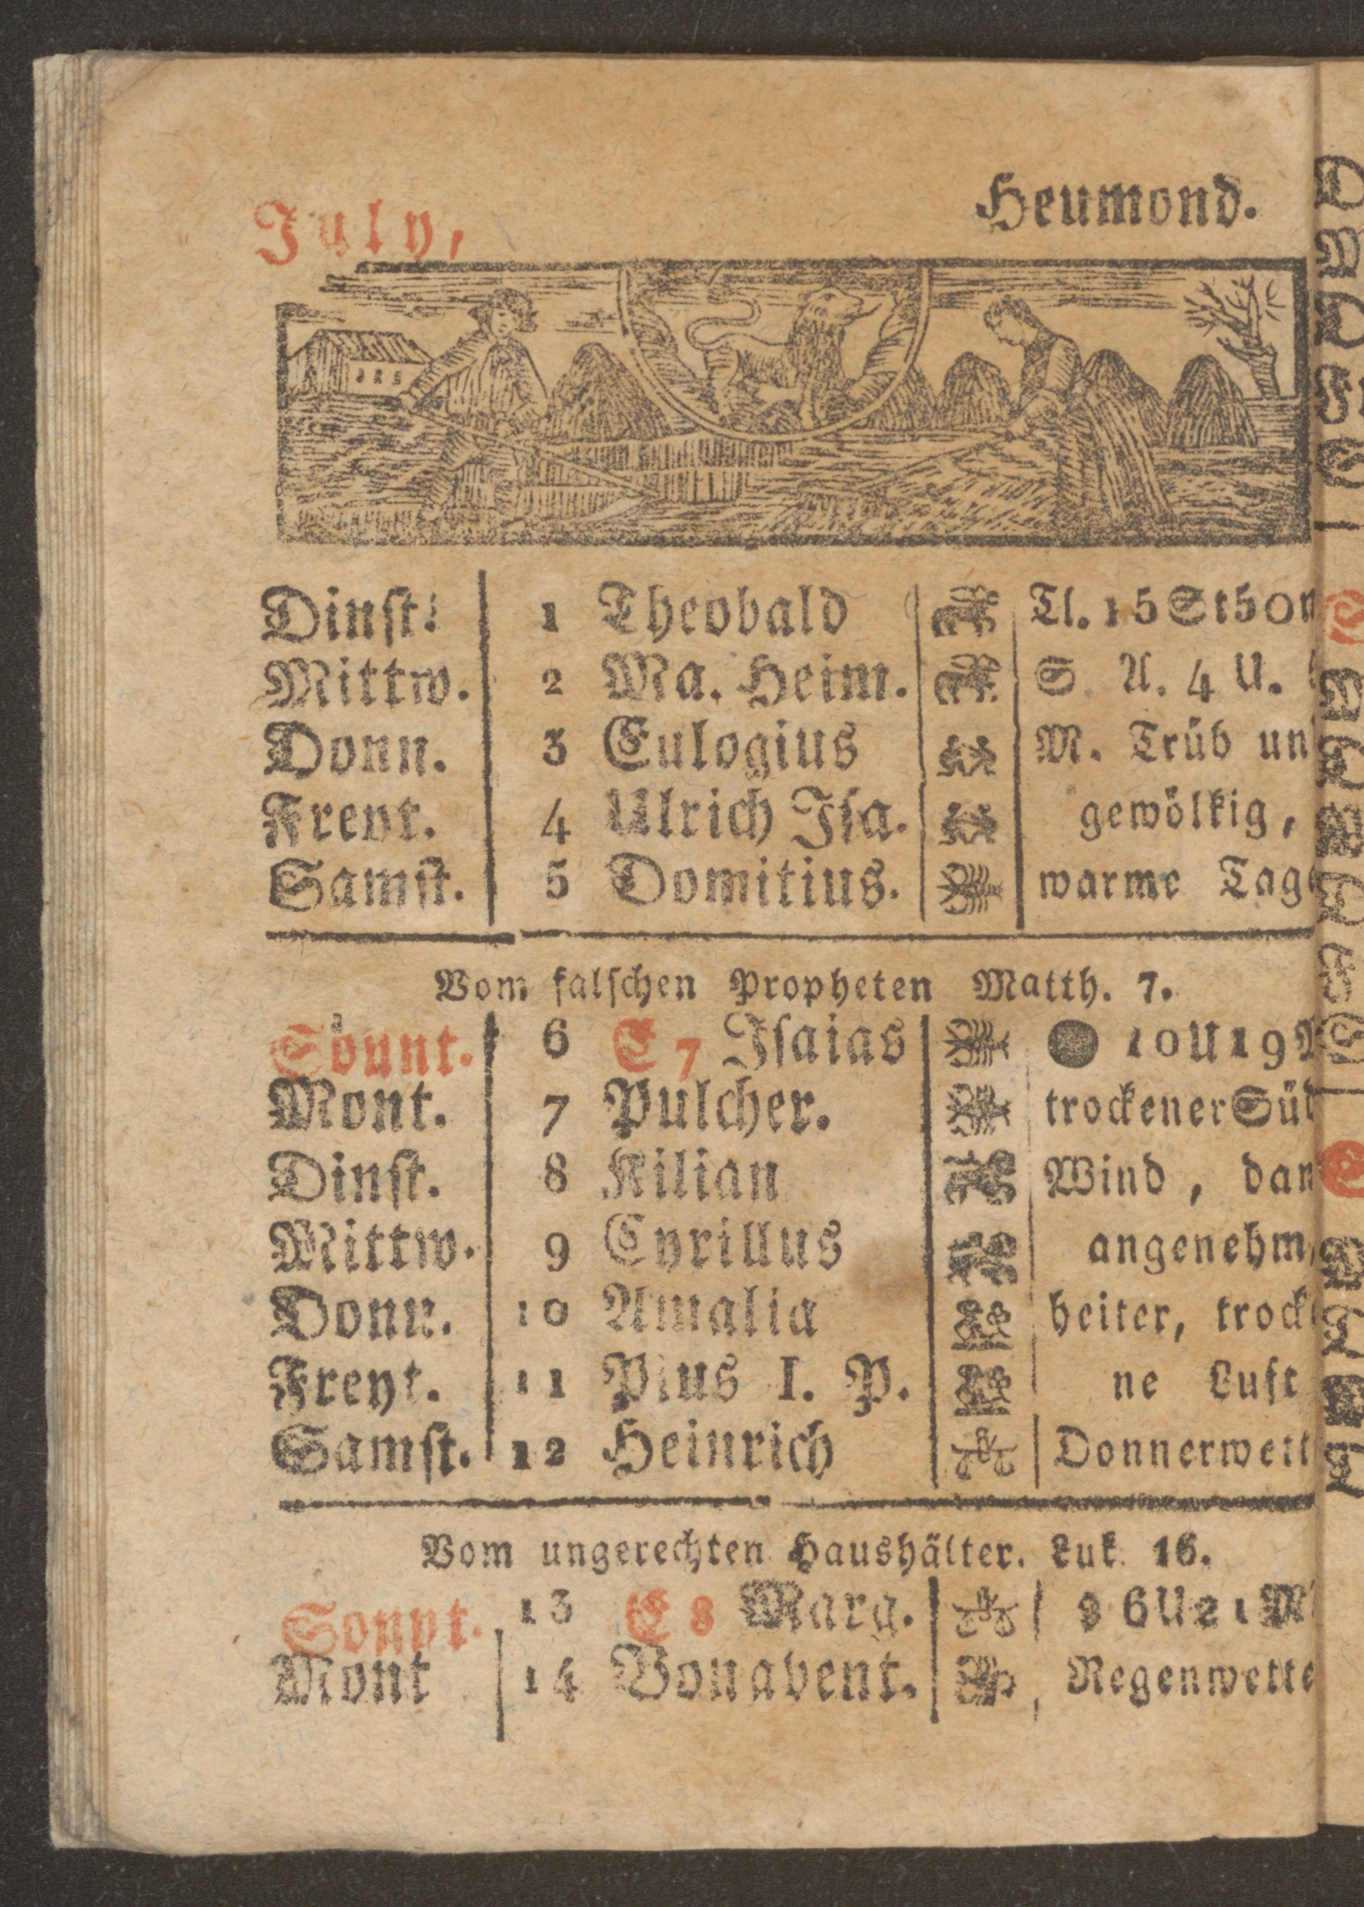 July,
Heumond.
Dinst. 1 Theobald Tl. 15 St 50
Mittw. 2 Ma. Heim. S. A. 4 U.
Donn. 3 Eulogius M. Trüb un
Freyt. 4 Ulrich Isa. gewölkig,
Samst. 5 Domitius. warme Tag
Vom falschen Propheten Matth. 7.
Sonnt. 6 E 7 Isaias 10U19
Mont. 7 Pulcher. trockener Süd
Dinst. 8 Kilian Wind, dan
Mittw. 9 Cyrillus angenehm,
Donn. 10 Amalia heiter, trock
Freyt. 11 Pius I. P. ne Luft
Samst. 12 Heinrich Donnerwett
Vom ungerechten Haushälter. Luk. 16.
Sonnt. 13 E 8 Marg. 6U21M
Mont 14 Bonavent. Regenwette